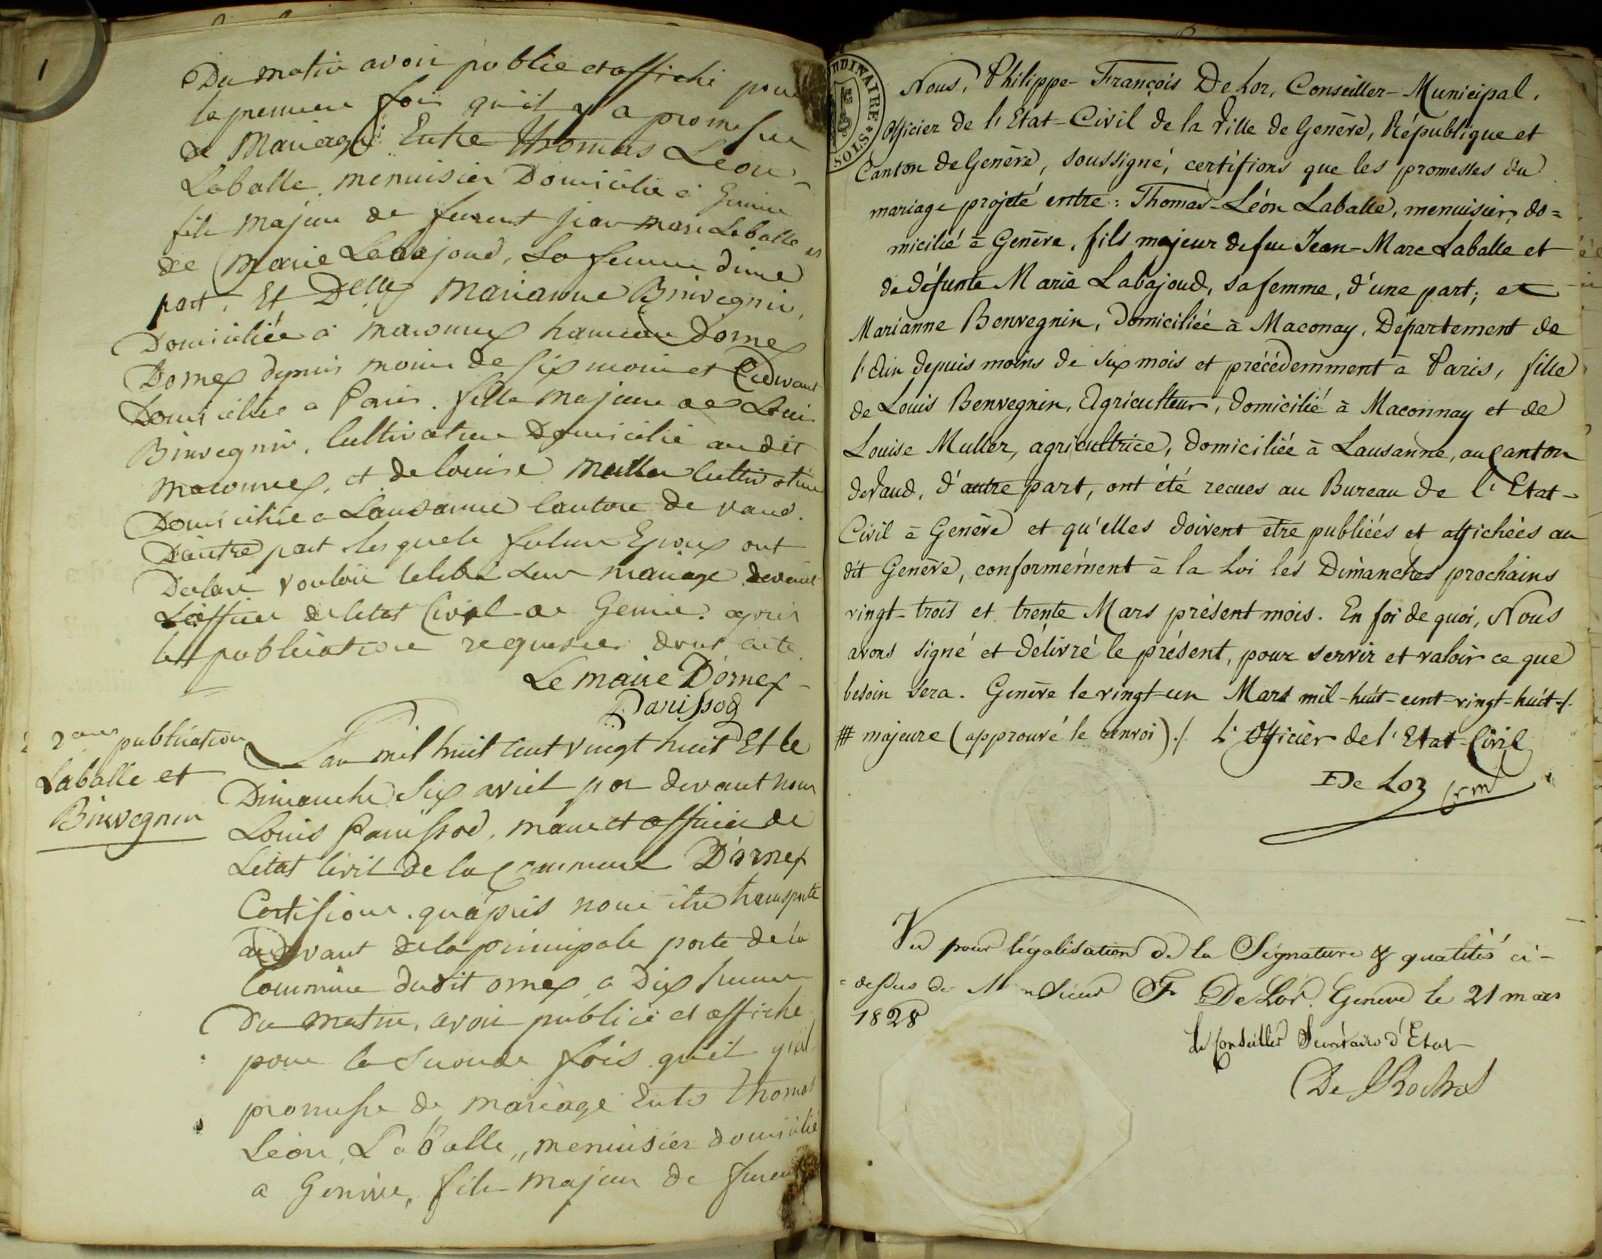 1
Du matin avoir publié et affiché pour
la premiere fois qu'il y a promesse
de Mariage Entre Thomas Léon
Laballe, menuisier Domicilié à Genève
fils majeur de feurent jean marc Laballe et
de Marie Labajoud, La femme d'une
part, Et Delle Marianne Binvegnin,
Domiciliée à maconnex hameau Dornex
Dornex depuis moins de six mois et Cidevant
Domiciliée a Paris. fille majeure de Louis
Binvegnin, Cultivateur Domicilié au dit
maconnex, et de louise muller Cultivatrice
Domiciliée a Lausanne Canton de vaud.
D'autre part lesquels futurs Epoux ont
Déclaré vouloir célébré leur mariage devant
L'officier de létat Civil de Genève après
les publications requises dont acte
Le maire D'ornex
Panissod
2eme publication
Laballe et
Binvegnin
L'an mil huit cent vingt huit Et le
Dimanche Six avril par devant nous
Louis Panissod, maire et officier de
Létat Civil de la Commune D'ornex
Certifions qu'après nous être transporté
audevant de la principale porte de la
Commune dudit ornex a Dix heures
Du matin, avoir publié et affiché
pour la seconde fois qu'il y a
promesse de mariage Entre Thomas
Léon Laballe, menuisier domicilié
a Genève, fils majeur de feurent
Nous, Philippe-François De Lor, Conseiller-Municipal,
Officier de l'Etat-Civil de la Ville de Genève, République et
Canton de Genève, soussigné, certifions que les promesses du
mariage projeté entre : Thomas-Léon Laballe, menuisier, do=
micilié à Genève, fils majeur de feu Jean-Marc Laballe et
de défunte Marie Labajoud, sa femme, d'une part; et
Marianne Benvegnin, domiciliée à Maconay, Département de
l'Ain depuis moins de six mois et précédemment à Paris, fille
de Louis Benvegnin, Agriculteur, domicilié à Maconnay et de
Louise Muller, agricultrice, domiciliée à Lausanne, au Canton
de Vaud, d'autre part, ont été recues au Bureau de l'Etat-
Civil à Genève et qu'elles doivent etre publiées et affichées au
dit Genève, conformément à la Loi les Dimanches prochains
vingt-trois et trente Mars présent mois. En foi de quoi, Nous
avons signé et délivré le présent, pour servir et valoir ce que
besoin sera. Genève le vingt-un Mars mil-huit-cent-vingt-huit./.
# majeure (approuvé le renvoi)./. L'Officier de l'Etat-Civil
De Lor
Vu pour légalisation de la Signature & qualités ci-
=dessus de Monsieur F. De Lor. Genève le 21 mars
1828
Le Conseiller Secrétaire d'Etat
De Roches